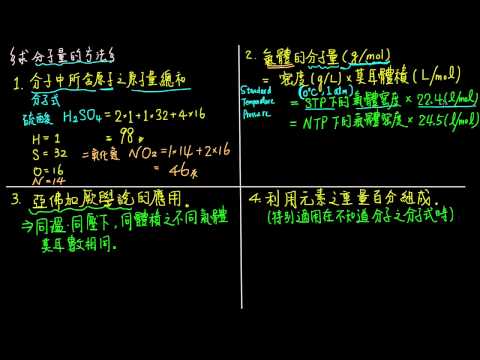 {求分子量的方法}
1. 分子中所含原子之原子量總和
分子式
硫酸 H₂SO₄ = 2×1+1×32+4×16
= 98
H = 1
S = 32
O = 16
N = 14
二氧化氮 NO₂ = 1×14+2×16
= 46
2. 氣體的分子量(g/mol)
= 密度(g/L) × 莫耳體積(L/mol)
Standard Temperature Pressure
(0°C, 1 atm)
= STP下的氣體密度 × 22.4(l/mol)
= NTP下的氣體密度 × 24.5(l/mol)
3. 亞佛加厥學說的應用.
⇒ 同溫.同壓下, 同體積之不同氣體
莫耳數相同.
4. 利用元素之重量百分組成.
(特別適用在不知道分子之分子式時)